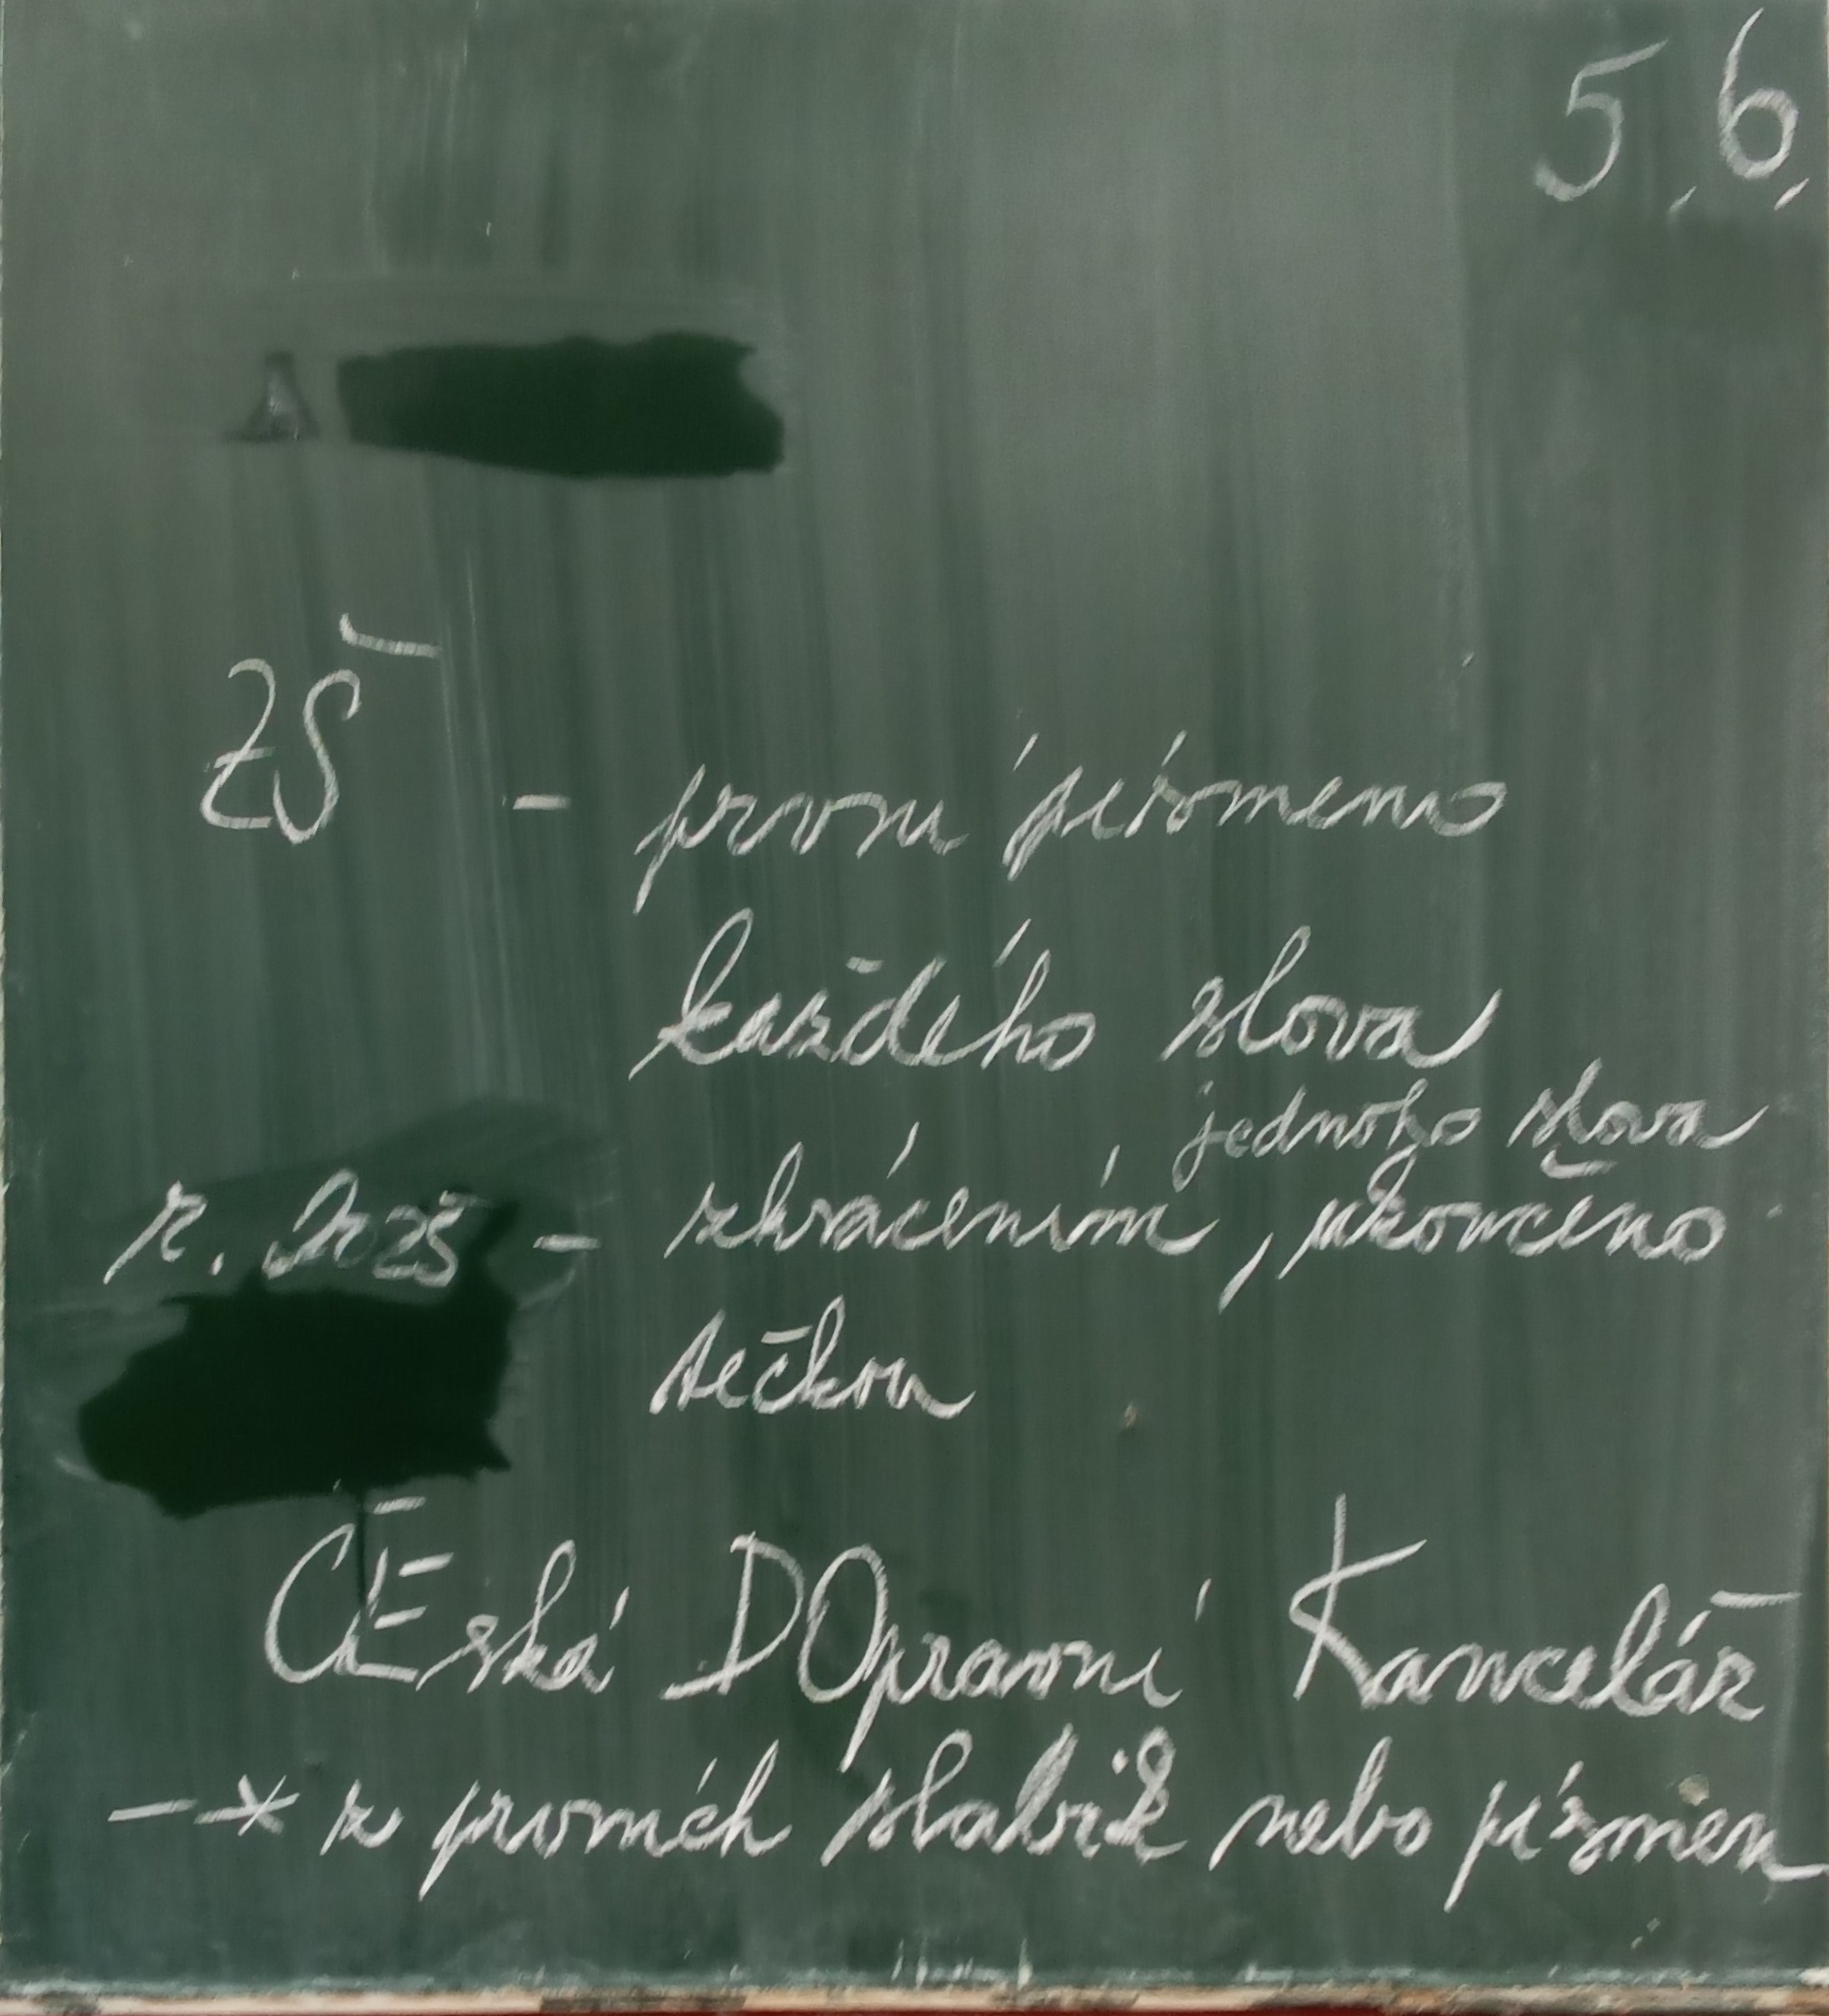 5. 6.
ZŠ - první písmeno
každého slova
jednoho slova
r. 2025 - zkrácením, ukončeno
tečkou
ČEská DOpravní Kancelář
- * z prvních slabik nebo písmen